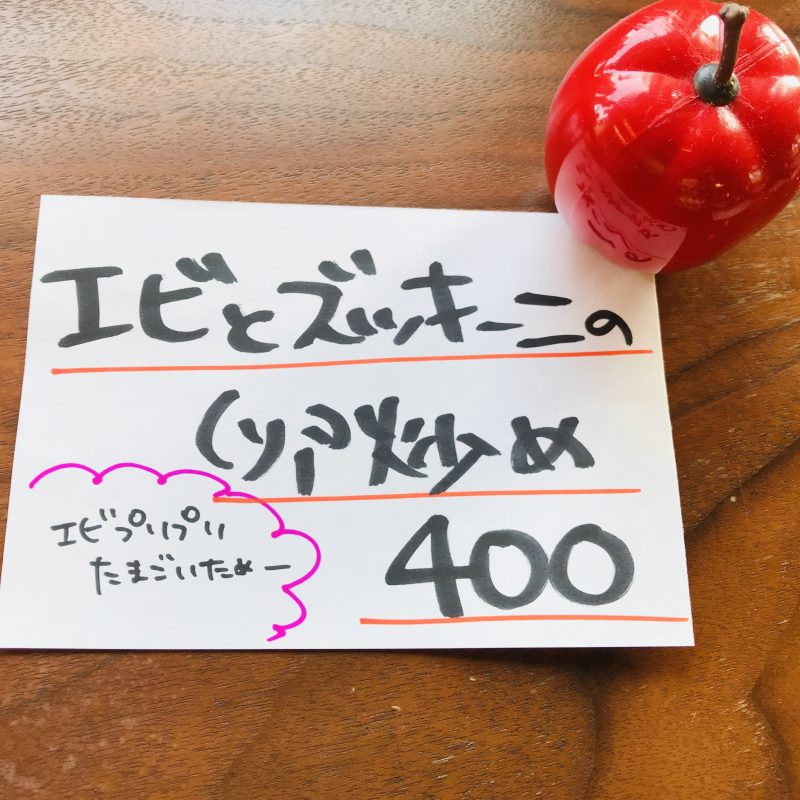 エビとズッキーニの
卵炒め
400
エビプリプリ
たまごいためー